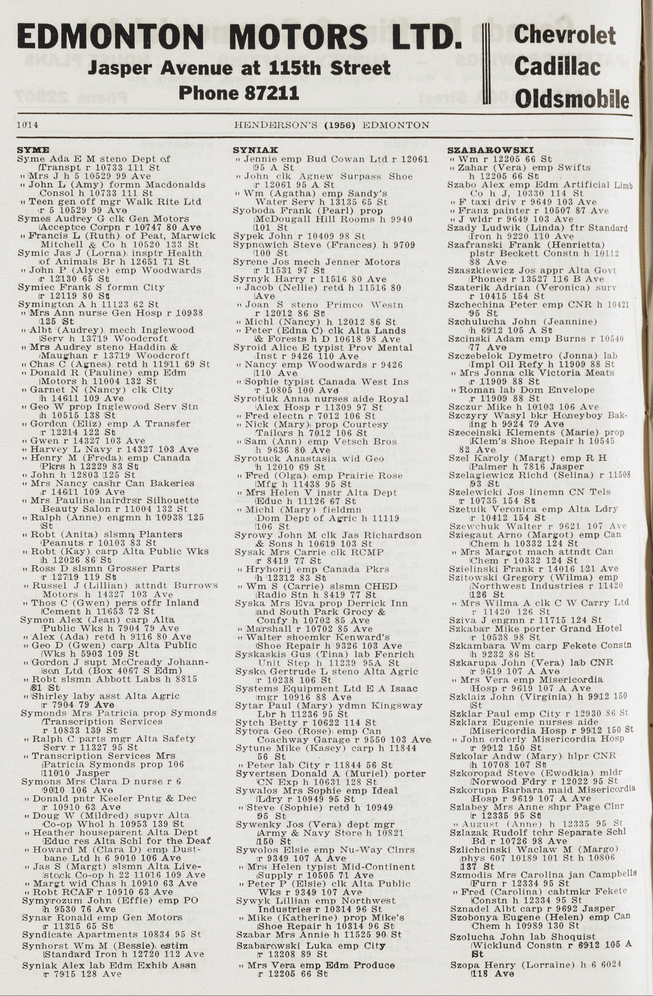 EDMONTON MOTORS LTD.
Jasper Avenue at 115th Street
Phone 87211
Chevrolet
Cadillac
Oldsmobile
1014
HENDERSON'S (1956) EDMONTON
SYME
Syme Ada E M steno Dept of
Transpt r 10733 111 St
" Mrs J h 5 10529 99 Ave
" John L (Amy) formn Macdonalds
Consol h 10733 111 St
" Teen gen off mgr Walk Rite Ltd
r 5 10529 99 Ave
Symes Audrey G clk Gen Motors
Acceptce Corpn r 10747 80 Ave
" Francis L (Ruth) of Peat, Marwick
Mitchell & Co h 10520 133 St
Symic Jas J (Lorna) insptr Health
of Animals Br h 12651 71 St
" John P (Alyce) emp Woodwards
r 12130 65 St
Symiec Frank S formn City
r 12119 80 St
Symington A h 11123 62 St
" Mrs Ann nurse Gen Hosp r 10938
125 St
" Albt (Audrey) mech Inglewood
Serv h 13719 Woodcroft
" Mrs Audrey steno Haddin &
Maughan r 13719 Woodcroft
" Chas C (Agnes) retd h 11911 69 St
" Donald R (Pauline) emp Edm
Motors h 11004 132 St
" Garnet N (Nancy) clk City
h 14611 109 Ave
" Geo W prop Inglewood Serv Stn
h 10515 138 St
" Gordon (Eliz) emp A Transfer
r 12214 122 St
" Gwen r 14327 103 Ave
" Harvey L Navy r 14327 103 Ave
" Henry M (Freda) emp Canada
Pkrs h 12229 83 St
" John h 12803 125 St
" Mrs Nancy cashr Can Bakeries
r 14611 109 Ave
" Mrs Pauline hairdrsr Silhouette
Beauty Salon r 11004 132 St
" Ralph (Anne) engmn h 10938 125
St
" Robt (Anita) slsmn Planters
Peanuts r 10103 83 St
" Robt (Kay) carp Alta Public Wks
h 12026 86 St
" Ross D slsmn Grosser Parts
r 12719 119 St
" Russel J (Lillian) attndt Burrows
Motors h 14327 103 Ave
" Thos C (Gwen) pers offr Inland
Cement h 11653 72 St
Symon Alex (Jean) carp Alta
Public Wks h 7904 79 Ave
" Alex (Ada) retd h 9116 80 Ave
" Geo D (Gwen) carp Alta Public
Wks h 5903 109 St
" Gordon J supt McCready Johann-
son Ltd (Box 4067 S Edm)
" Robt slsmn Abbott Labs h 8815
81 St
" Shirley laby asst Alta Agric
r 7904 79 Ave
Symonds Mrs Patricia prop Symonds
Transcription Services
r 10833 139 St
" Ralph C parts mgr Alta Safety
Serv r 11327 95 St
" Transcription Services Mrs
Patricia Symonds prop 106
11010 Jasper
Symons Mrs Clara D nurse r 6
9010 106 Ave
" Donald pntr Keeler Pntg & Dec
r 10910 63 Ave
" Doug W (Mildred) supvr Alta
Co-op Whol h 10953 139 St
" Heather houseparent Alta Dept
Educ res Alta Schl for the Deaf
" Howard M (Clara D) emp Dust-
bane Ltd h 6 9010 106 Ave
" Jas S (Margt) slsmn Alta Live-
stock Co-op h 22 11016 109 Ave
" Margt wid Chas h 10910 63 Ave
" Robt RCAF r 10910 63 Ave
Symyrozum John (Effie) emp PO
h 9530 76 Ave
Synar Ronald emp Gen Motors
r 11315 65 St
Syndicate Apartments 10834 95 St
Synhorst Wm M (Bessie) estim
Standard Iron h 12720 112 Ave
Syniak Alex lab Edm Exhib Assn
r 7915 128 Ave
SYNIAK
" Jennie emp Bud Cowan Ltd r 12061
95 A St
" John clk Agnew Surpass Shoe
r 12061 95 A St
" Wm (Agatha) emp Sandy's
Water Serv h 13135 65 St
Syoboda Frank (Pearl) prop
McDougall Hill Rooms h 9940
101 St
Sypek John r 10409 98 St
Sypnowich Steve (Frances) h 9709
100 St
Syrene Jos mech Jenner Motors
r 11531 97 St
Syrnyk Harry r 11516 80 Ave
" Jacob (Nellie) retd h 11516 80
Ave
" Joan S steno Primco Westn
r 12012 86 St
" Michl (Nancy) h 12012 86 St
" Peter (Edna C) clk Alta Lands
& Forests h D 10618 98 Ave
Syroid Alice E typist Prov Mental
Inst r 9426 110 Ave
" Nancy emp Woodwards r 9426
110 Ave
" Sophie typist Canada West Ins
r 10805 100 Ave
Syrotiuk Anna nurses aide Royal
Alex Hosp r 11309 97 St
" Fred electn r 7012 106 St
" Nick (Mary) prop Courtesy
Tailors h 7012 106 St
" Sam (Ann) emp Vetsch Bros
h 9636 80 Ave
Syrotuck Anastasia wid Geo
h 12010 69 St
" Fred (Olga) emp Prairie Rose
Mfg h 11438 95 St
" Mrs Helen V instr Alta Dept
Educ h 11126 67 St
" Michl (Mary) fieldmn
Dom Dept of Agric h 11119
106 St
Syrowy John M clk Jas Richardson
& Sons h 10619 103 St
Sysak Mrs Carrie clk RCMP
r 8419 77 St
" Hryhorij emp Canada Pkrs
h 12312 83 St
" Wm S (Carrie) slsmn CHED
Radio Stn h 8419 77 St
Syska Mrs Eva prop Derrick Inn
and South Park Grocy &
Confy h 10702 85 Ave
" Marshall r 10702 85 Ave
" Walter shoemkr Kenward's
Shoe Repair h 9326 103 Ave
Syskaskis Gus (Tina) lab Fenrich
Unit Step h 11239 95A St
Sysko Gertrude L steno Alta Agric
r 10238 106 St
Systems Equipment Ltd E A Isaac
mgr 10916 88 Ave
Sytar Paul (Mary) ydmn Kingsway
Lbr h 11236 95 St
Sytch Betty r 10622 114 St
Sytora Geo (Rose) emp Can
Coachway Garage r 9550 103 Ave
Sytune Mike (Kasey) carp h 11844
56 St
" Peter lab City r 11844 56 St
Syvertsen Donald A (Muriel) porter
CN Exp h 10631 128 St
Sywalos Mrs Sophie emp Ideal
Ldry r 10949 95 St
" Steve (Sophie) retd h 10949
95 St
Sywenky Jos (Vera) dept mgr
Army & Navy Store h 10821
150 St
Sywolos Elsie emp Nu-Way Clnrs
r 9349 107 A Ave
" Mrs Helen typist Mid-Continent
Supply r 10505 71 Ave
" Peter P (Elsie) clk Alta Public
Wks r 9349 107 Ave
Sywyk Lillian emp Northwest
Industries r 10314 96 St
" Mike (Katherine) prop Mike's
Shoe Repair h 10314 96 St
Szabar Mrs Annie h 11525 90 St
Szabarowski Luka emp City
r 13208 89 St
" Mrs Vera emp Edm Produce
r 12205 66 St
SZABAROWSKI
" Wm r 12205 66 St
" Zahar (Vera) emp Swifts
h 12205 66 St
Szabo Alex emp Edm Artificial Limb
Co h J, 10330 114 St
" F taxi driv r 9649 103 Ave
" Franz painter r 10507 87 Ave
" J wldr r 9649 103 Ave
Szady Ludwik (Linda) ftr Standard
Iron h 9220 110 Ave
Szafranski Frank (Henrietta)
plstr Beckett Constn h 10112
88 Ave
Szaszkiewicz Jos appr Alta Govt
Phones r 13527 116 B Ave
Szaterik Adrian (Veronica) surv
r 10415 154 St
Szchechina Peter emp CNR h 10421
95 St
Szchulucha John (Jeannine)
h 6912 105 A St
Szcinski Adam emp Burns r 10540
77 Ave
Szczebelok Dymetro (Jonna) lab
Impl Oil Refy h 11909 88 St
" Mrs Jonna clk Victoria Meats
r 11909 88 St
" Roman lab Dom Envelope
r 11909 88 St
Szczur Mike h 10103 106 Ave
Szczyry Wasyl bkr Honeyboy Bak-
ing h 9924 79 Ave
Szeceinski Klements (Marie) prop
Klem's Shoe Repair h 10545
82 Ave
Szel Karoly (Margt) emp R H
Palmer h 7816 Jasper
Szelagiewicz Richd (Selina) r 11508
93 St
Szelewicki Jos linemn CN Tels
r 10735 154 St
Szetuik Veronica emp Alta Ldry
r 10412 154 St
Szewchuk Walter r 9621 107 Ave
Sziegaut Arno (Margot) emp Can
Chem h 10332 124 St
" Mrs Margot mach attndt Can
Chem r 10332 124 St
Szielinski Frank r 14016 121 Ave
Szitowski Gregory (Wilma) emp
Northwest Industries r 11420
126 St
" Mrs Wilma A clk C W Carry Ltd
r 11420 126 St
Sziva J engmn r 11715 124 St
Szkabar Mike porter Grand Hotel
r 10538 98 St
Szkambara Wm carp Fekete Constn
h 9232 86 St
Szkarupa John (Vera) lab CNR
r 9619 107 A Ave
" Mrs Vera emp Misericordia
Hosp r 9619 107 A Ave
Szklaiz John (Virginia) h 9912 150
St
Szklar Paul emp City r 12930 86 St
Szklarz Eugenie nurses aide
Misericordia Hosp r 9912 150 St
" John orderly Misericordia Hosp
r 9912 150 St
Szkolar Andw (Mary) hlpr CNR
h 10708 107 St
Szkoropad Steve (Ewodkia) mldr
Norwood Fdry r 12022 95 St
Szkorupa Barbara maid Misericordia
Hosp r 9619 107 A Ave
Szlabey Mrs Anne shpr Page Clnr
r 12335 95 St
" August (Anne) h 12335 95 St
Szlazak Rudolf tchr Separate Schl
Bd r 10726 98 Ave
Szlichcinski Waclaw M (Margo)
phys 607 10189 101 St h 10806
137 St
Szmodis Mrs Carolina jan Campbells
Furn r 12334 95 St
" Fred (Carolina) cabtmkr Fekete
Constn h 12334 95 St
Sznadel Albt carp r 9692 Jasper
Szobonya Eugene (Helen) emp Can
Chem h 10989 130 St
Szolucha John lab Shoquist
Wicklund Constn r 6912 105 A
St
Szopa Henry (Lorraine) h 6 6024
118 Ave